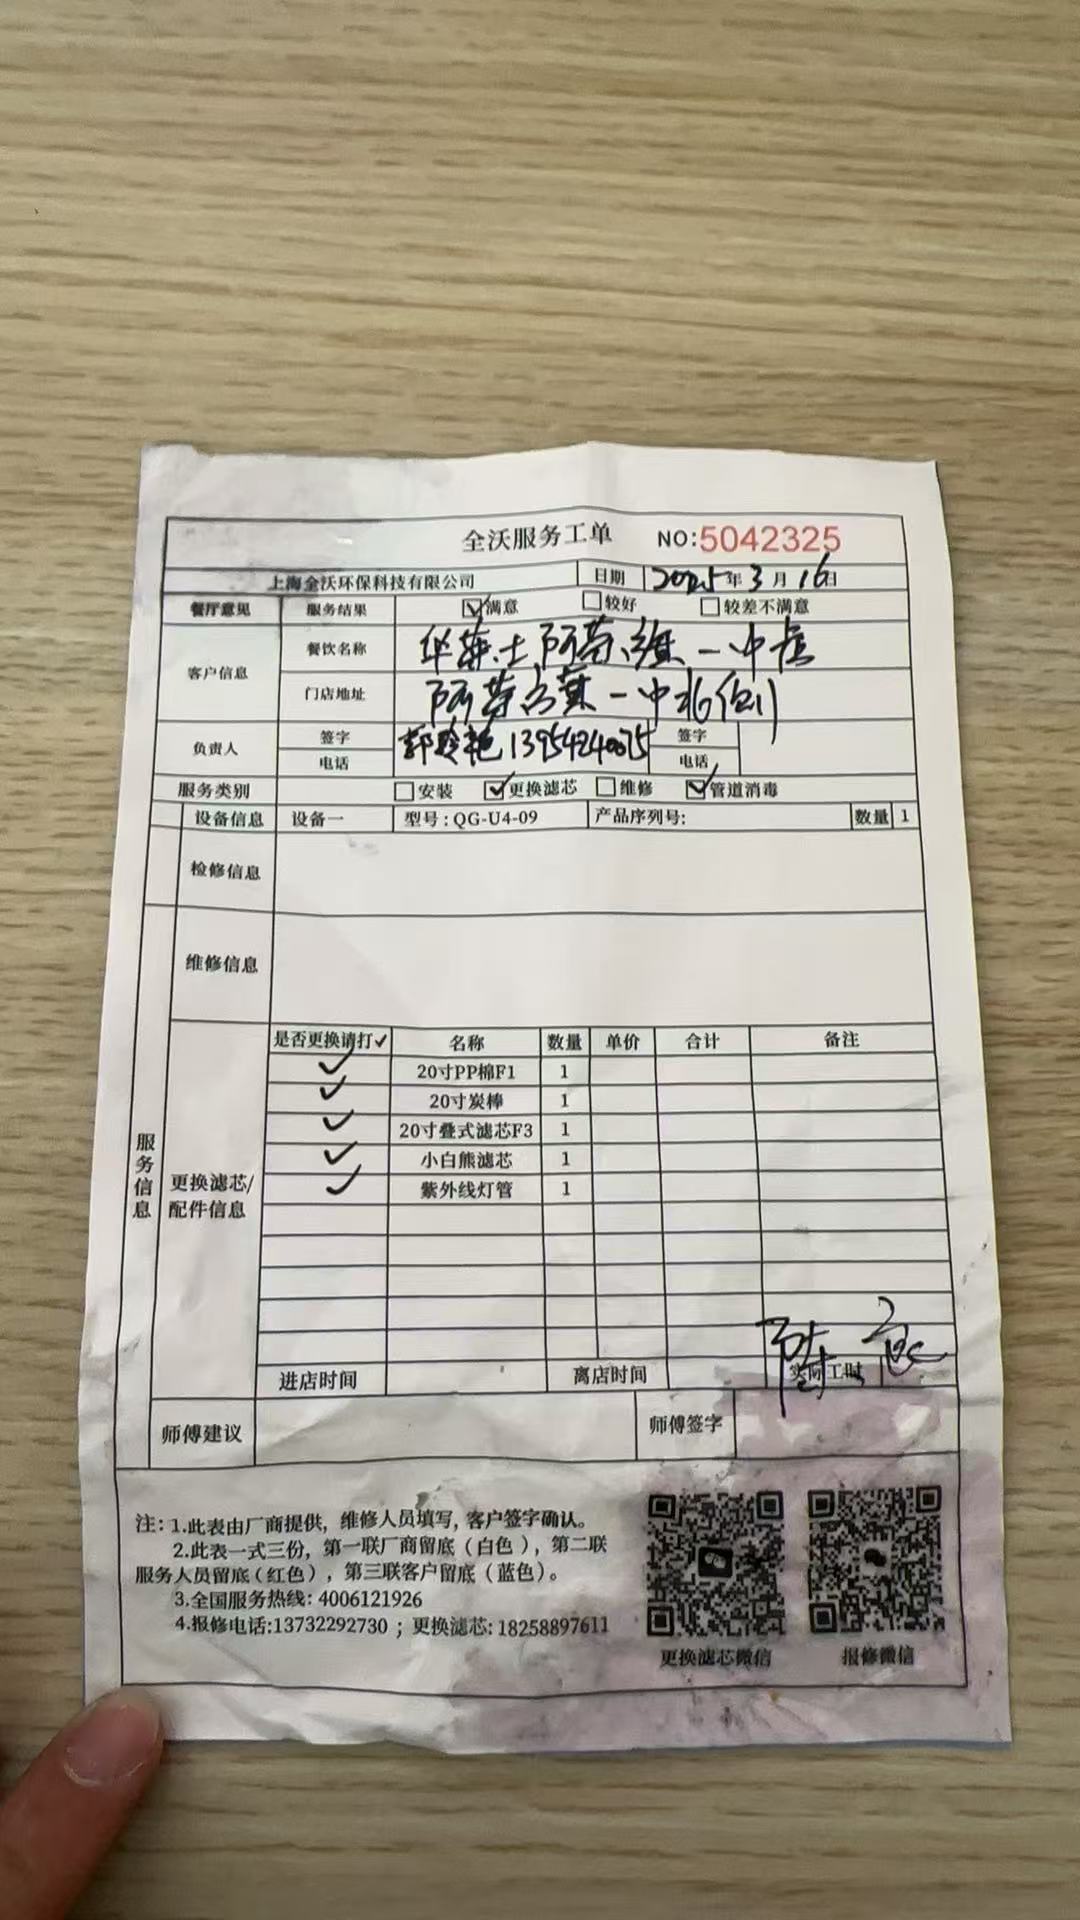 全沃服务工单 NO:5042325
上海全沃环保科技有限公司 日期 2025年3月16日
餐厅意见 服务结果 ☑满意 □较好 □较差不满意
客户信息 餐饮名称 华莱士阿荣旗一中店
门店地址 阿荣旗一中北侧
负责人 签字 签字
电话 电话
郭玲艳 13954240075
服务类别 □安装 ☑更换滤芯 □维修 ☑管道消毒
设备信息 设备一 型号:QG-U4-09 产品序列号: 数量 1
检修信息
维修信息
服务信息
更换滤芯/
配件信息
是否更换请打✓ 名称 数量 单价 合计 备注
✓ 20寸PP棉F1 1
✓ 20寸炭棒 1
✓ 20寸叠式滤芯F3 1
✓ 小白熊滤芯 1
✓ 紫外线灯管 1
进店时间 离店时间 实际工时
师傅建议 师傅签字 陈
注:1.此表由厂商提供,维修人员填写,客户签字确认。
2.此表一式三份,第一联厂商留底(白色),第二联
服务人员留底(红色),第三联客户留底(蓝色)。
3.全国服务热线:4006121926
4.报修电话:13732292730;更换滤芯:18258897611
更换滤芯微信 报修微信